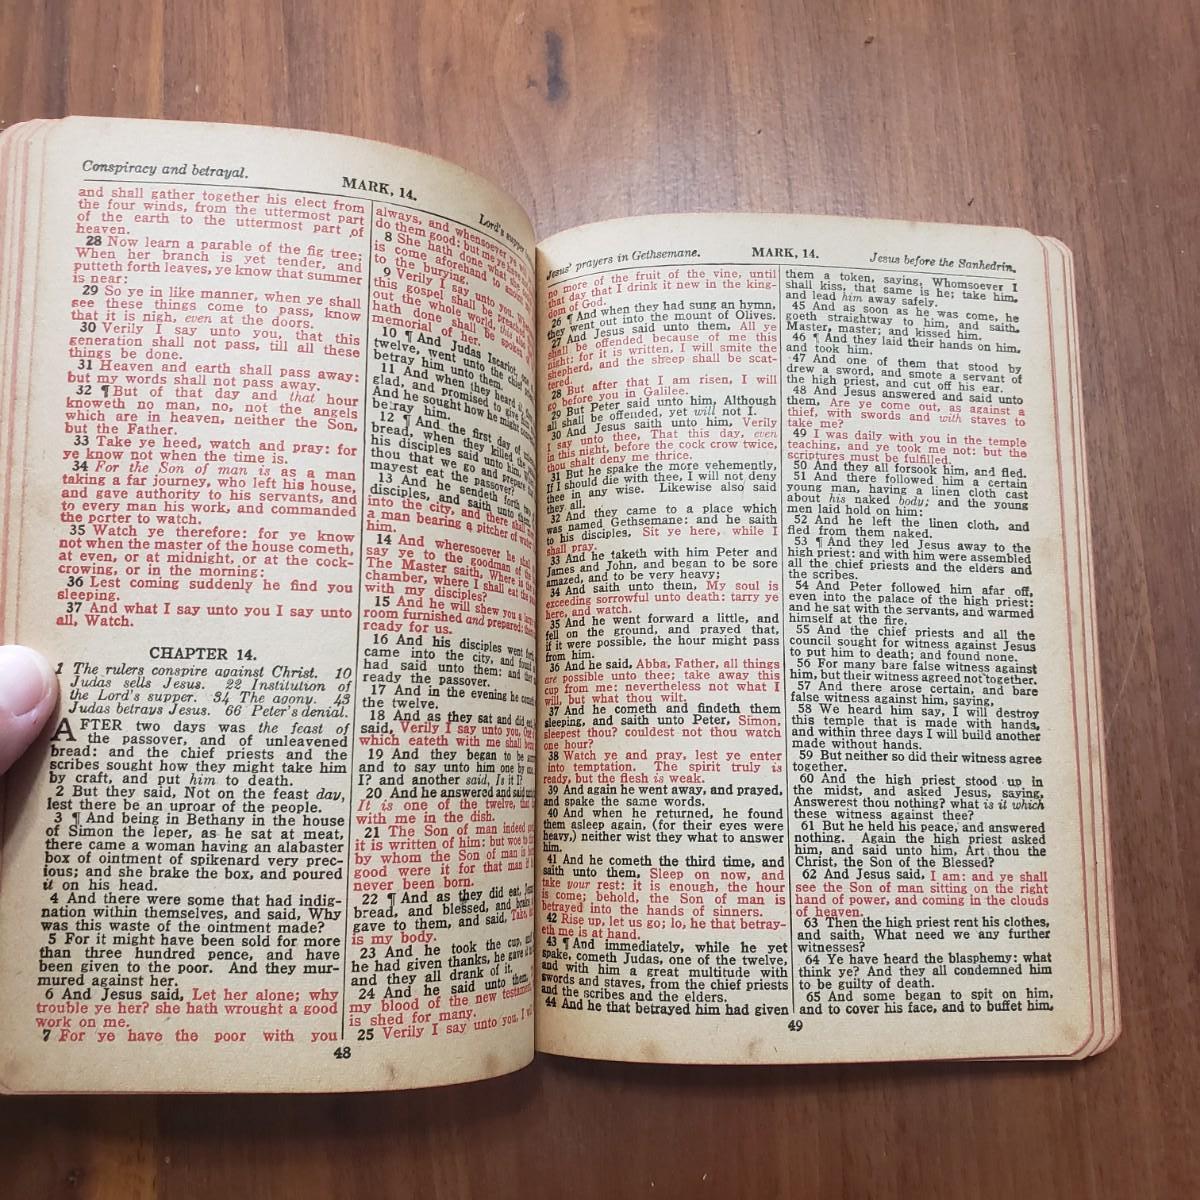 Conspiracy and betrayal.
MARK, 14.
Lord's supper
and shall gather together his elect from
the four winds, from the uttermost part
of the earth to the uttermost part of
heaven.
28 Now learn a parable of the fig tree;
When her branch is yet tender, and
putteth forth leaves, ye know that summer
is near:
29 So ye in like manner, when ye shall
see these things come to pass, know
that it is nigh, even at the doors.
30 Verily I say unto you, that this
generation shall not pass, till all these
things be done.
31 Heaven and earth shall pass away:
but my words shall not pass away.
32 ¶ But of that day and that hour
knoweth no man, no, not the angels
which are in heaven, neither the Son,
but the Father.
33 Take ye heed, watch and pray: for
ye know not when the time is.
34 For the Son of man is as a man
taking a far journey, who left his house,
and gave authority to his servants, and
to every man his work, and commanded
the porter to watch.
35 Watch ye therefore: for ye know
not when the master of the house cometh,
at even, or at midnight, or at the cock-
crowing, or in the morning:
36 Lest coming suddenly he find you
sleeping.
37 And what I say unto you I say unto
all, Watch.
CHAPTER 14.
1 The rulers conspire against Christ. 10
Judas sells Jesus. 22 Institution of
the Lord's supper. 34 The agony. 43
Judas betrays Jesus. 66 Peter's denial.
AFTER two days was the feast of
the passover, and of unleavened
bread: and the chief priests and the
scribes sought how they might take him
by craft, and put him to death.
2 But they said, Not on the feast day,
lest there be an uproar of the people.
3 ¶ And being in Bethany in the house
of Simon the leper, as he sat at meat,
there came a woman having an alabaster
box of ointment of spikenard very prec-
ious; and she brake the box, and poured
it on his head.
4 And there were some that had indig-
nation within themselves, and said, Why
was this waste of the ointment made?
5 For it might have been sold for more
than three hundred pence, and have
been given to the poor. And they mur-
mured against her.
6 And Jesus said, Let her alone; why
trouble ye her? she hath wrought a good
work on me.
7 For ye have the poor with you
always, and whensoever ye will
do them good: but me ye have
8 She hath done what she
is come aforehand to anoint
to the burying.
9 Verily I say unto you,
this gospel shall be preached
out the whole world, this also
hath done shall be spoken
memorial of her.
10 ¶ And Judas Iscariot,
twelve, went unto the chief
betray him unto them.
11 And when they heard it,
glad, and promised to give
And he sought how he might
betray him.
12 ¶ And the first day of
bread, when they killed the
his disciples said unto him,
thou that we go and prepare
mayest eat the passover?
13 And he sendeth forth two
disciples, and saith unto them,
into the city, and there shall
a man bearing a pitcher of
him.
14 And wheresoever he shall
say ye to the goodman of the
The Master saith, Where is the
chamber, where I shall eat the
with my disciples?
15 And he will shew you a large
room furnished and prepared:
ready for us.
16 And his disciples went forth,
came into the city, and found
had said unto them: and they
ready the passover.
17 And in the evening he cometh
the twelve.
18 And as they sat and did eat,
said, Verily I say unto you, One
which eateth with me shall
19 And they began to be
and to say unto him one by
I? and another said, Is it I?
20 And he answered and said unto
It is one of the twelve, that
with me in the dish.
21 The Son of man indeed
it is written of him: but woe to
by whom the Son of man is
good were it for that man if
never been born.
22 ¶ And as they did eat,
bread, and blessed, and brake
gave to them, and said, Take,
is my body.
23 And he took the cup, and
he had given thanks, he gave it
and they all drank of it.
24 And he said unto them,
my blood of the new testament,
is shed for many.
25 Verily I say unto you, I
48
Jesus' prayers in Gethsemane.
MARK, 14.
Jesus before the Sanhedrin.
no more of the fruit of the vine, until
that day that I drink it new in the king-
dom of God.
26 ¶ And when they had sung an hymn,
they went out into the mount of Olives.
27 And Jesus said unto them, All ye
shall be offended because of me this
night: for it is written, I will smite the
shepherd, and the shreep shall be scat-
tered.
28 But after that I am risen, I will
go before you in Galilee.
29 But Peter said unto him, Although
all shall be offended, yet will not I.
30 And Jesus saith unto him, Verily
I say unto thee, That this day, even
in this night, before the cock crow twice,
thou shalt deny me thrice.
31 But he spake the more vehemently,
If I should die with thee, I will not deny
thee in any wise. Likewise also said
they all.
32 And they came to a place which
was named Gethsemane: and he saith
to his disciples, Sit ye here, while I
shall pray.
33 And he taketh with him Peter and
James and John, and began to be sore
amazed, and to be very heavy;
34 And saith unto them, My soul is
exceeding sorrowful unto death: tarry ye
here, and watch.
35 And he went forward a little, and
fell on the ground, and prayed that,
if it were possible, the hour might pass
from him.
36 And he said, Abba, Father, all things
are possible unto thee; take away this
cup from me: nevertheless not what I
will, but what thou wilt.
37 And he cometh and findeth them
sleeping, and saith unto Peter, Simon,
sleepest thou? couldest not thou watch
one hour?
38 Watch ye and pray, lest ye enter
into temptation. The spirit truly is
ready, but the flesh is weak.
39 And again he went away, and prayed,
and spake the same words.
40 And when he returned, he found
them asleep again, (for their eyes were
heavy,) neither wist they what to answer
him.
41 And he cometh the third time, and
saith unto them, Sleep on now, and
take your rest: it is enough, the hour
is come; behold, the Son of man is
betrayed into the hands of sinners.
42 Rise up, let us go; lo, he that betray-
eth me is at hand.
43 ¶ And immediately, while he yet
spake, cometh Judas, one of the twelve,
and with him a great multitude with
swords and staves, from the chief priests
and the scribes and the elders.
44 And he that betrayed him had given
them a token, saying, Whomsoever I
shall kiss, that same is he; take him,
and lead him away safely.
45 And as soon as he was come, he
goeth straightway to him, and saith,
Master, master; and kissed him.
46 ¶ And they laid their hands on him,
and took him.
47 And one of them that stood by
drew a sword, and smote a servant of
the high priest, and cut off his ear.
48 And Jesus answered and said unto
them, Are ye come out, as against a
thief, with swords and with staves to
take me?
49 I was daily with you in the temple
teaching, and ye took me not: but the
scriptures must be fulfilled.
50 And they all forsook him, and fled.
51 And there followed him a certain
young man, having a linen cloth cast
about his naked body; and the young
men laid hold on him:
52 And he left the linen cloth, and
fled from them naked.
53 ¶ And they led Jesus away to the
high priest: and with him were assembled
all the chief priests and the elders and
the scribes.
54 And Peter followed him afar off,
even into the palace of the high priest:
and he sat with the servants, and warmed
himself at the fire.
55 And the chief priests and all the
council sought for witness against Jesus
to put him to death; and found none.
56 For many bare false witness against
him, but their witness agreed not together.
57 And there arose certain, and bare
false witness against him, saying,
58 We heard him say, I will destroy
this temple that is made with hands,
and within three days I will build another
made without hands.
59 But neither so did their witness agree
together.
60 And the high priest stood up in
the midst, and asked Jesus, saying,
Answerest thou nothing? what is it which
these witness against thee?
61 But he held his peace, and answered
nothing. Again the high priest asked
him, and said unto him, Art thou the
Christ, the Son of the Blessed?
62 And Jesus said, I am: and ye shall
see the Son of man sitting on the right
hand of power, and coming in the clouds
of heaven.
63 Then the high priest rent his clothes,
and saith, What need we any further
witnesses?
64 Ye have heard the blasphemy: what
think ye? And they all condemned him
to be guilty of death.
65 And some began to spit on him,
and to cover his face, and to buffet him,
49